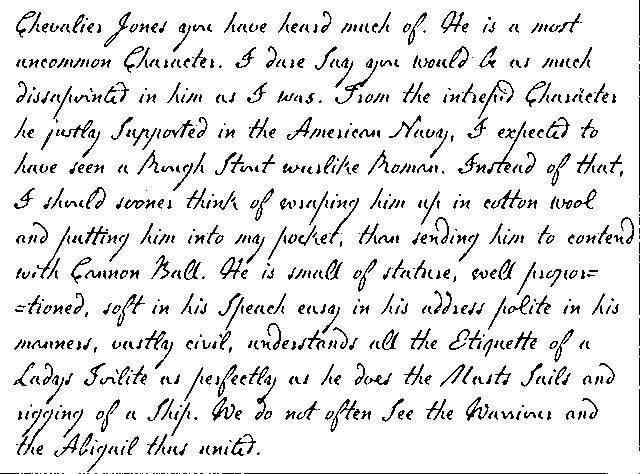 Chevalier Jones you have heard much of. He is a most
uncommon Character. I dare Say you would be as much
dissapointed in him as I was. From the intrepid Character
he justly Supported in the American Navy, I expected to
have seen a Rough Stout warlike Roman. Instead of that,
I should sooner think of wraping him up in cotton wool
and putting him into my pocket, than sending him to contend
with Cannon Ball. He is small of stature, well propor=
=tioned, soft in his Speach easy in his address polite in his
manners, vastly civil, understands all the Etiquette of a
Ladys Toilite as perfectly as he does the Masts Sails and
rigging of a Ship. We do not often See the Warriour and
the Abigail thus united.